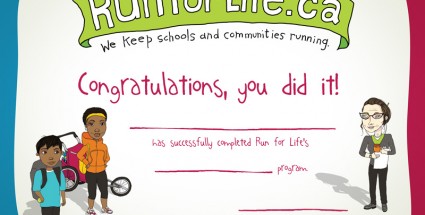 RunforLife.ca
We Keep schools and communities running.
Congratulations, you did it!
has successfully completed Run for Life's
program.